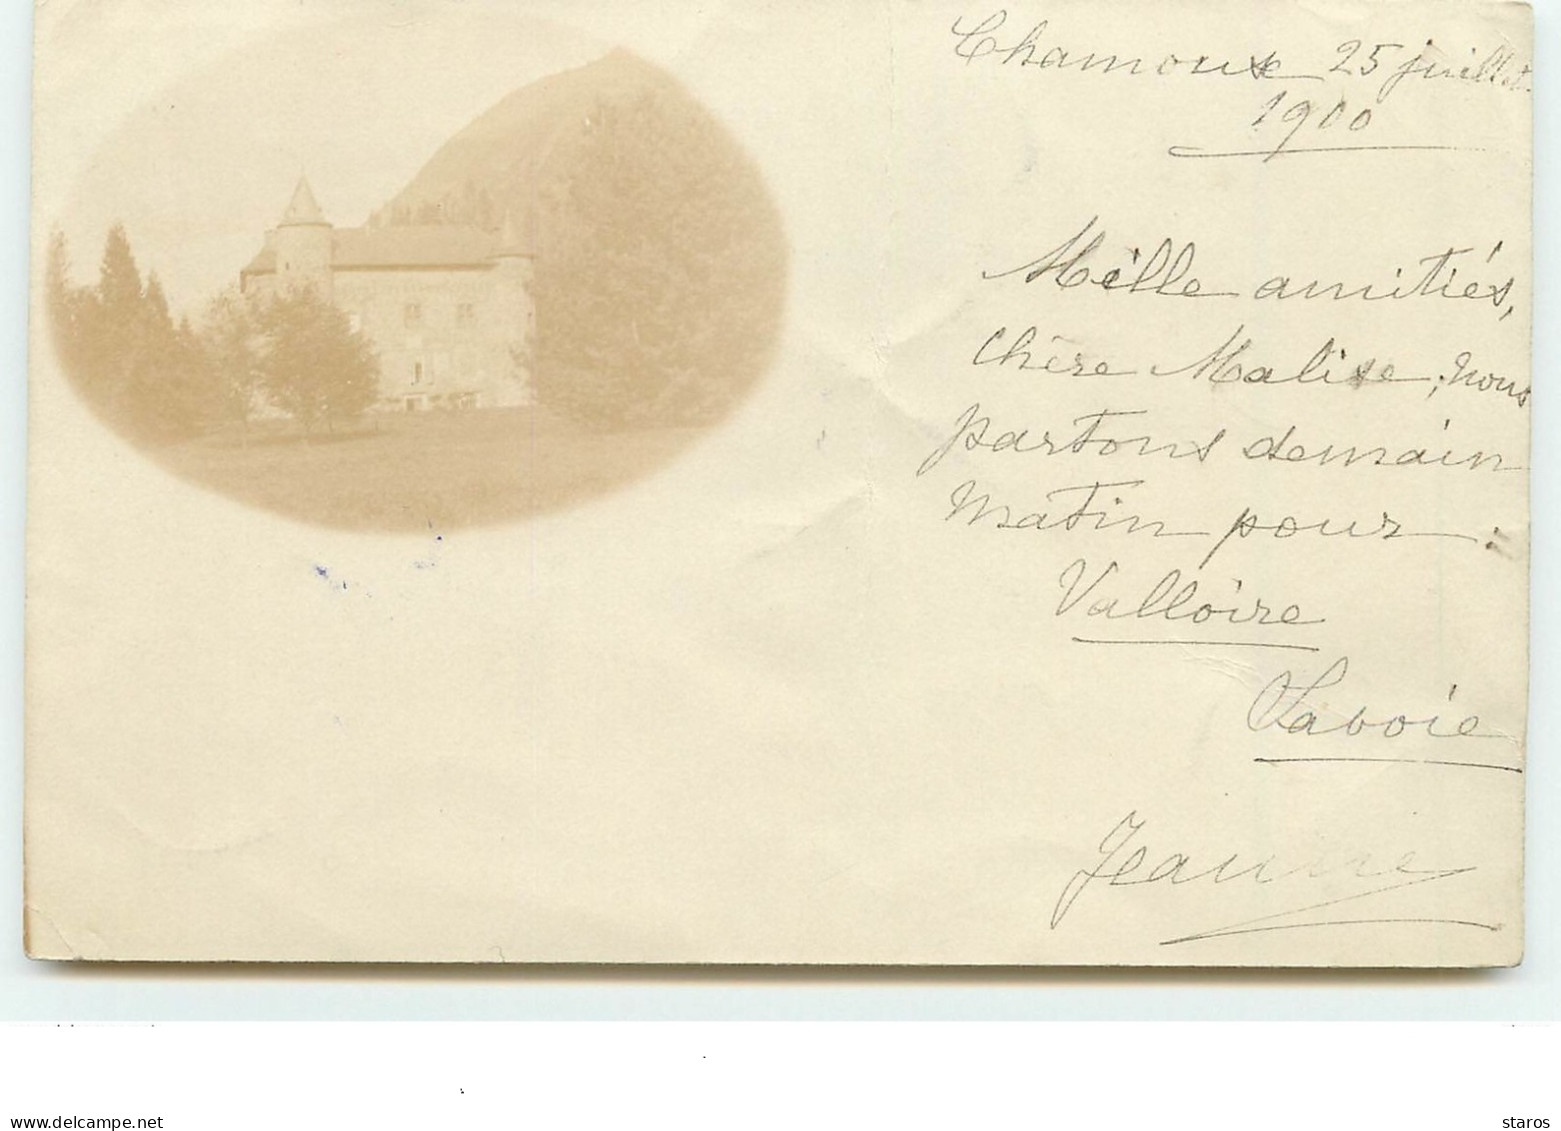 Chamoux 25 juillet
1900
Mille amitiés,
chère Malise, nous
partons demain
matin pour :
Valloire
Savoie
Jeanne
www.delcampe.net
staros